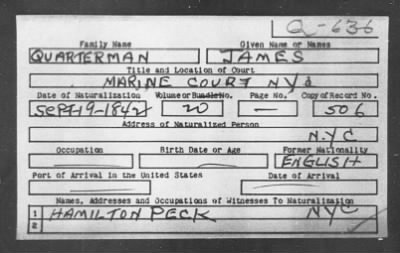 Q-636
Family Name Given Name or Names
QUARTERMAN JAMES
Title and Location of Court
MARINE COURT NYC
Date of Naturalization Volume or Bundle No. Page No. Copy of Record No.
SEPT 19-1842 20 — 506
Address of Naturalized Person
N.Y.C
Occupation Birth Date or Age Former Nationality
ENGLISH
Port of Arrival in the United States Date of Arrival
Names, Addresses and Occupations of Witnesses To Naturalization
1 HAMILTON PECK NYC
2